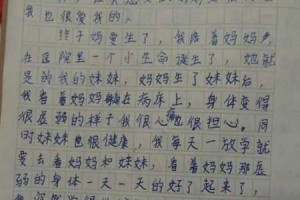 我也很爱我的。
终于妈要生了，我陪着妈妈
在医院里一个小生命诞生了，她就
是的我的妹妹，妈妈生了妹妹后，
我看着妈妈躺在病床上，身体变得
很医弱的样子我很心 也很担心。同
时妹妹也很健康，我每天一放学就
爱去看妈妈和妹妹，看着妈妈那医
弱的身体一天一天的好了起来了，